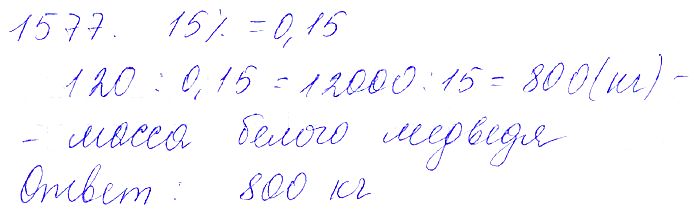 1577. 15% = 0,15
120 : 0,15 = 12000 : 15 = 800 (кг) -
- масса белого медведя
Ответ: 800 кг